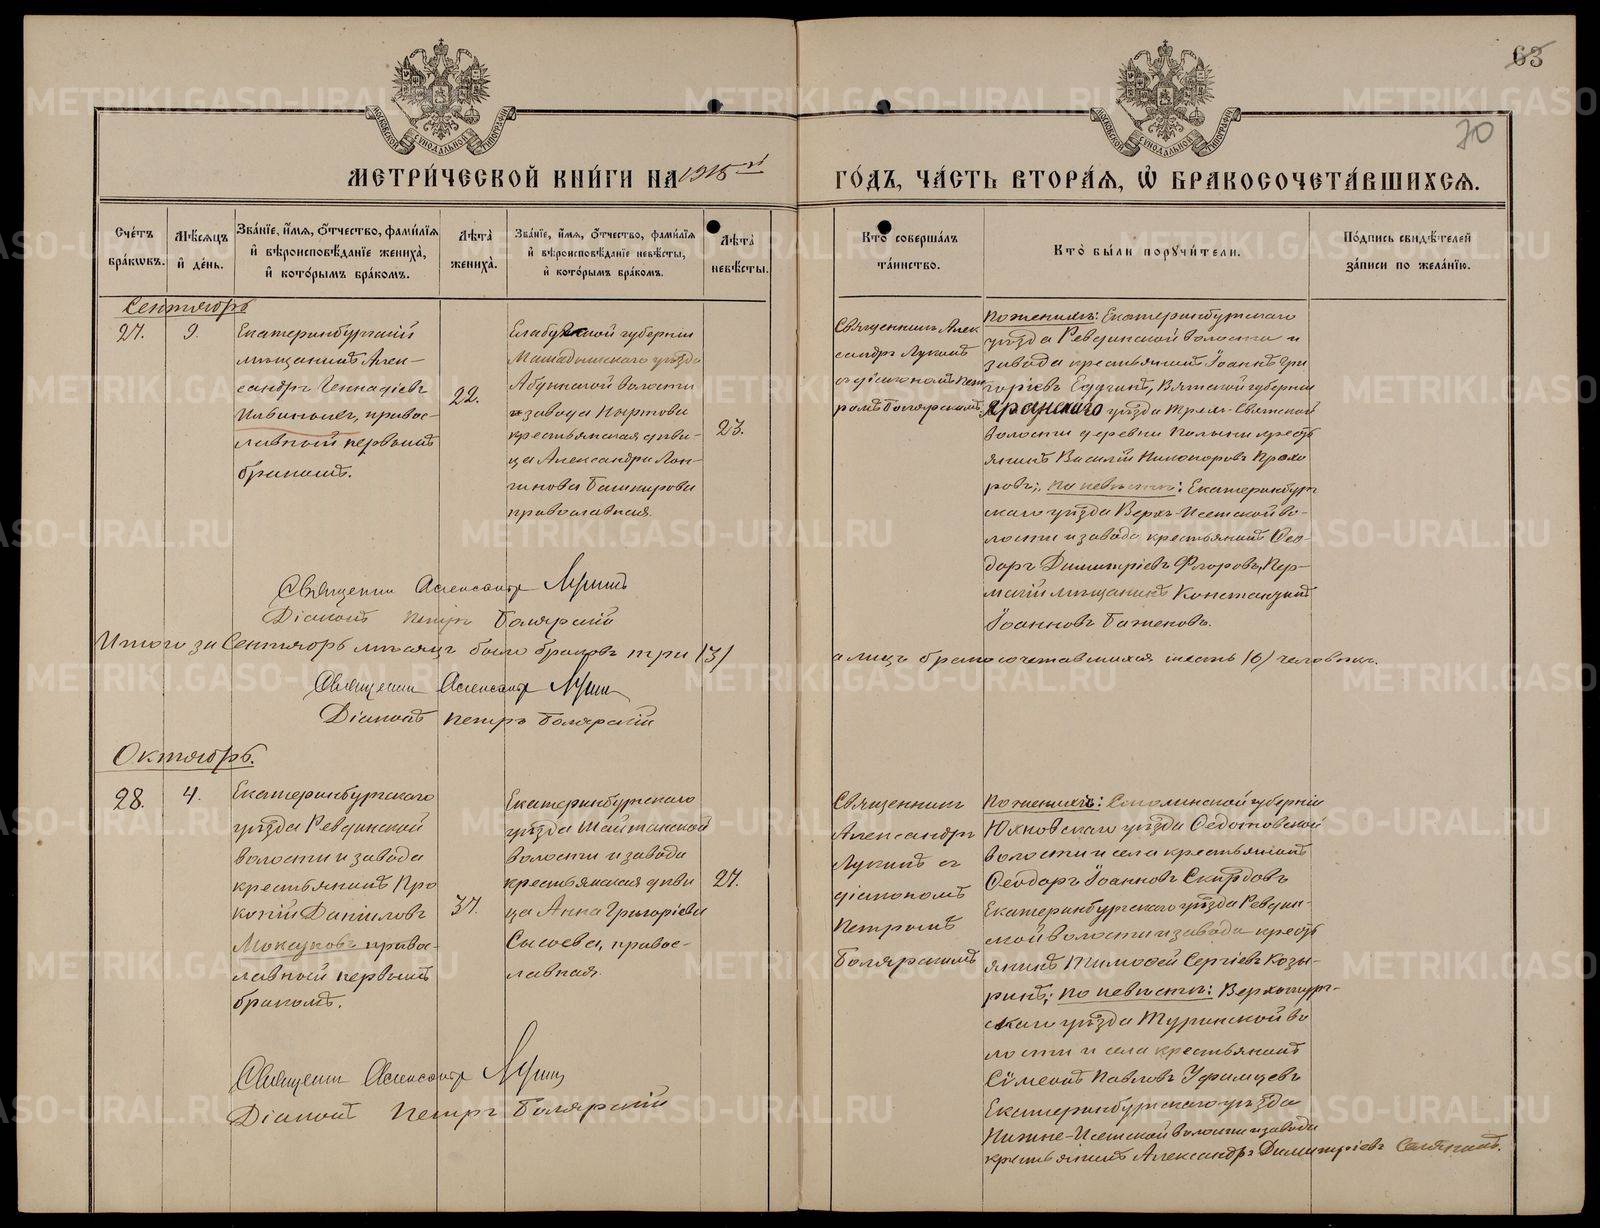 63
70
МЕТРИ́ЧЕСКОЙ КНИ́ГИ НА 1918 й
ГО́ДЪ, ЧА́СТЬ ВТОРА́Я, Ѽ БРАКОСОЧЕТА́ВШИХСЯ.
Сче́тъ бра́кѡвъ.
Мѣ́сяцъ и҆ де́нь.
Зва́нїе, и҆́мя, ѻ҆́тчество, фами́лїя и҆ вѣроисповѣ́данїе жениха̀, и҆ кото́рымъ бра́комъ.
Лѣта̀ жениха̀.
Зва́нїе, и҆́мя, ѻ҆́тчество, фами́лїя и҆ вѣроисповѣ́данїе невѣ́сты, и҆ кото́рымъ бра́комъ.
Лѣта̀ невѣ́сты.
Кто̀ соверша́лъ та́инство.
Кто̀ бы́ли поручи́тели.
По́дпись свидѣ́телей за́писи по жела́нїю.
Сентябрь
27.
9.
Екатеринбургскій
мѣщанинъ Алек-
сандръ Геннадіевъ
православный первымъ
бракомъ.
22.
губерніи
уѣзда
волости
и завода
крестьянская дѣви-
ца Александра Лон-
гинова Башкирова
православная.
23.
Священникъ Алек
сандръ Лукинъ
съ діакономъ Пет
ромъ Боляркимъ
По женихѣ: Екатеринбургскаго
уѣзда Ревдинской волости и
завода крестьянинъ Іоаннъ Гри
горіевъ Вятской губерніи
Яранскаго уѣзда Трех-Святской
волости деревни крестъ
янинъ Василій Никаноровъ Прохо
ровъ; по невѣстѣ: Екатеринбург
скаго уѣзда Верх-Исетской во-
лости и завода крестьянинъ Ѳео-
доръ Димитріевъ Пер-
мскій мѣщанинъ Константинъ
Іоанновъ Баженовъ.
Священникъ Александръ Лукинъ
Діаконъ Петръ Болярскій
Итого за Сентябрь мѣсяцъ было браковъ три (3)
а лицъ бракосочетавшихся шесть (6) человѣкъ.
Священникъ Александръ Лукинъ
Діаконъ Петръ Болярскій
Октябрь.
28.
4.
Екатеринбургскаго
уѣзда Ревдинской
волости и завода
крестьянинъ Про
копій Даніиловъ
православный первымъ
бракомъ.
37.
Екатеринбургскаго
уѣзда Шайтанской
волости и завода
крестьянская дѣви
ца Анна Григоріева
Сысоева, правос-
лавная.
27.
Священникъ
Александръ
Лукинъ съ
діакономъ
Петромъ
Болярскимъ
По женихѣ: Смоленской губерніи
Юхновскаго уѣзда Ѳедотовской
волости и села крестьянинъ
Ѳеодоръ Іоанновъ
Екатеринбургскаго уѣзда Ревдин-
ской волости и завода крестъ
янинъ Тимоѳей Сергіевъ Козы-
ринъ; по невѣстѣ: Верхотур-
скаго уѣзда Туринской во
лости и села крестьянинъ
Сѵмеонъ Павловъ Уфимцевъ
Екатеринбургскаго уѣзда
Нижне-Исетской волости и завода
крестьянинъ Александръ Димитріевъ
Священникъ Александръ Лукинъ
Діаконъ Петръ Болярскій
METRIKI.GASO-URAL.RU